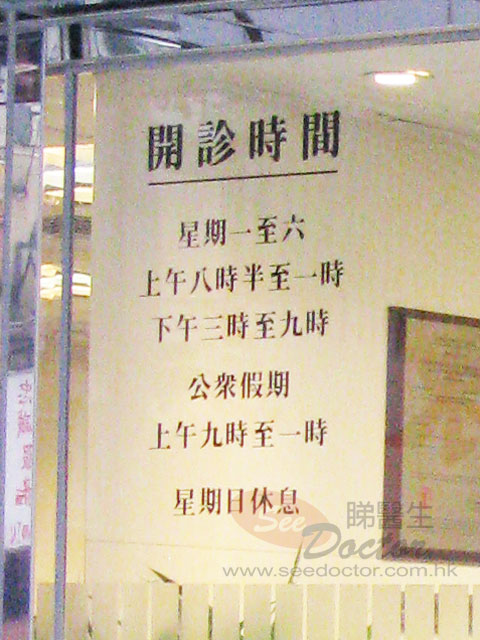 開診時間
星期一至六
上午八時半至一時
下午三時至九時
公眾假期
上午九時至一時
星期日休息
See Doctor 睇醫生
www.seedoctor.com.hk